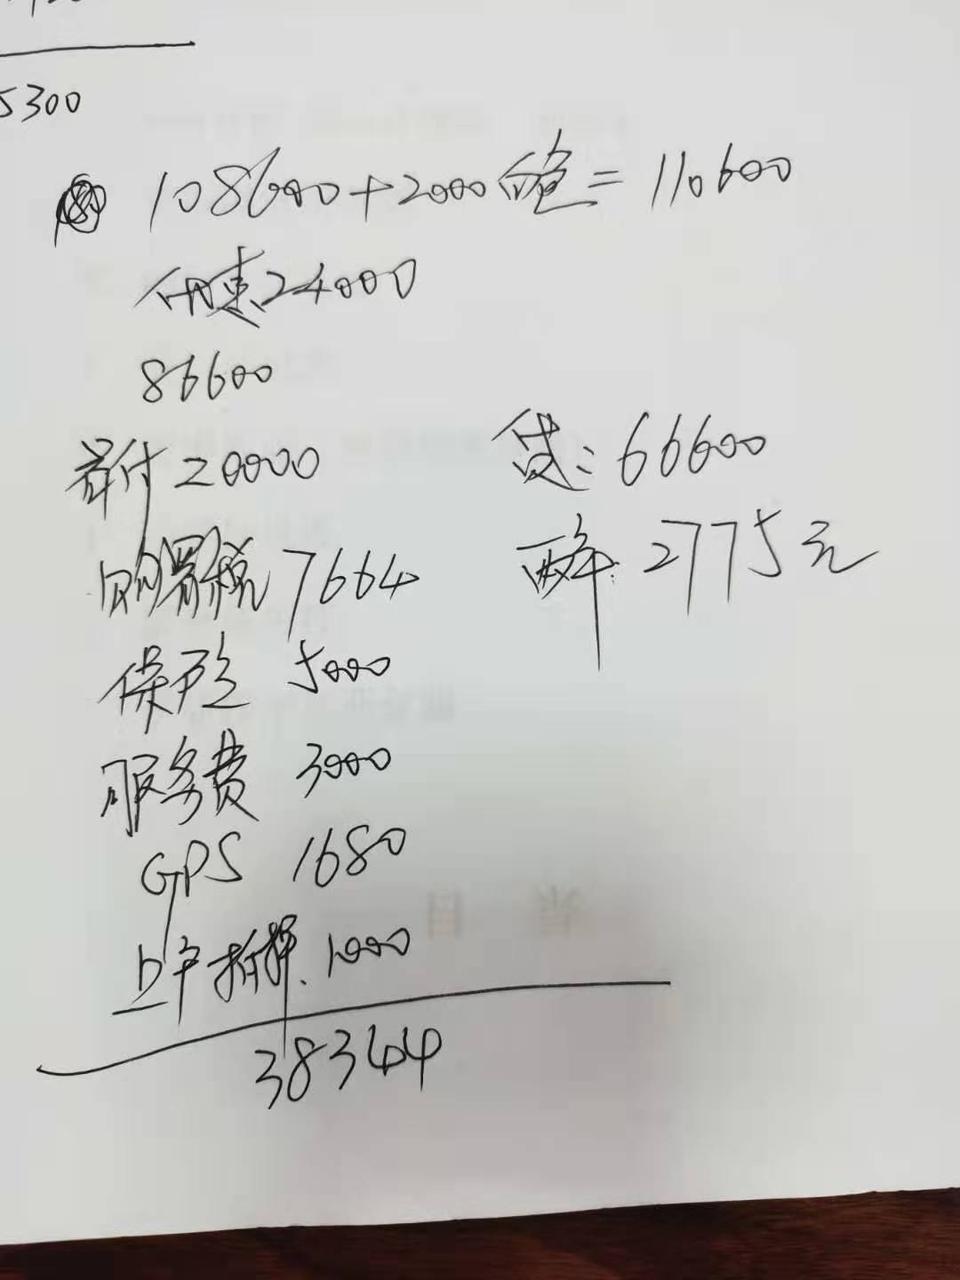 5300
108600+2000白色=110600
优惠24000
86600
首付20000
贷:66600
购置税7664
两年:2775元
保险 5000
服务费 3000
GPS 1680
上户拆押.1000
38344